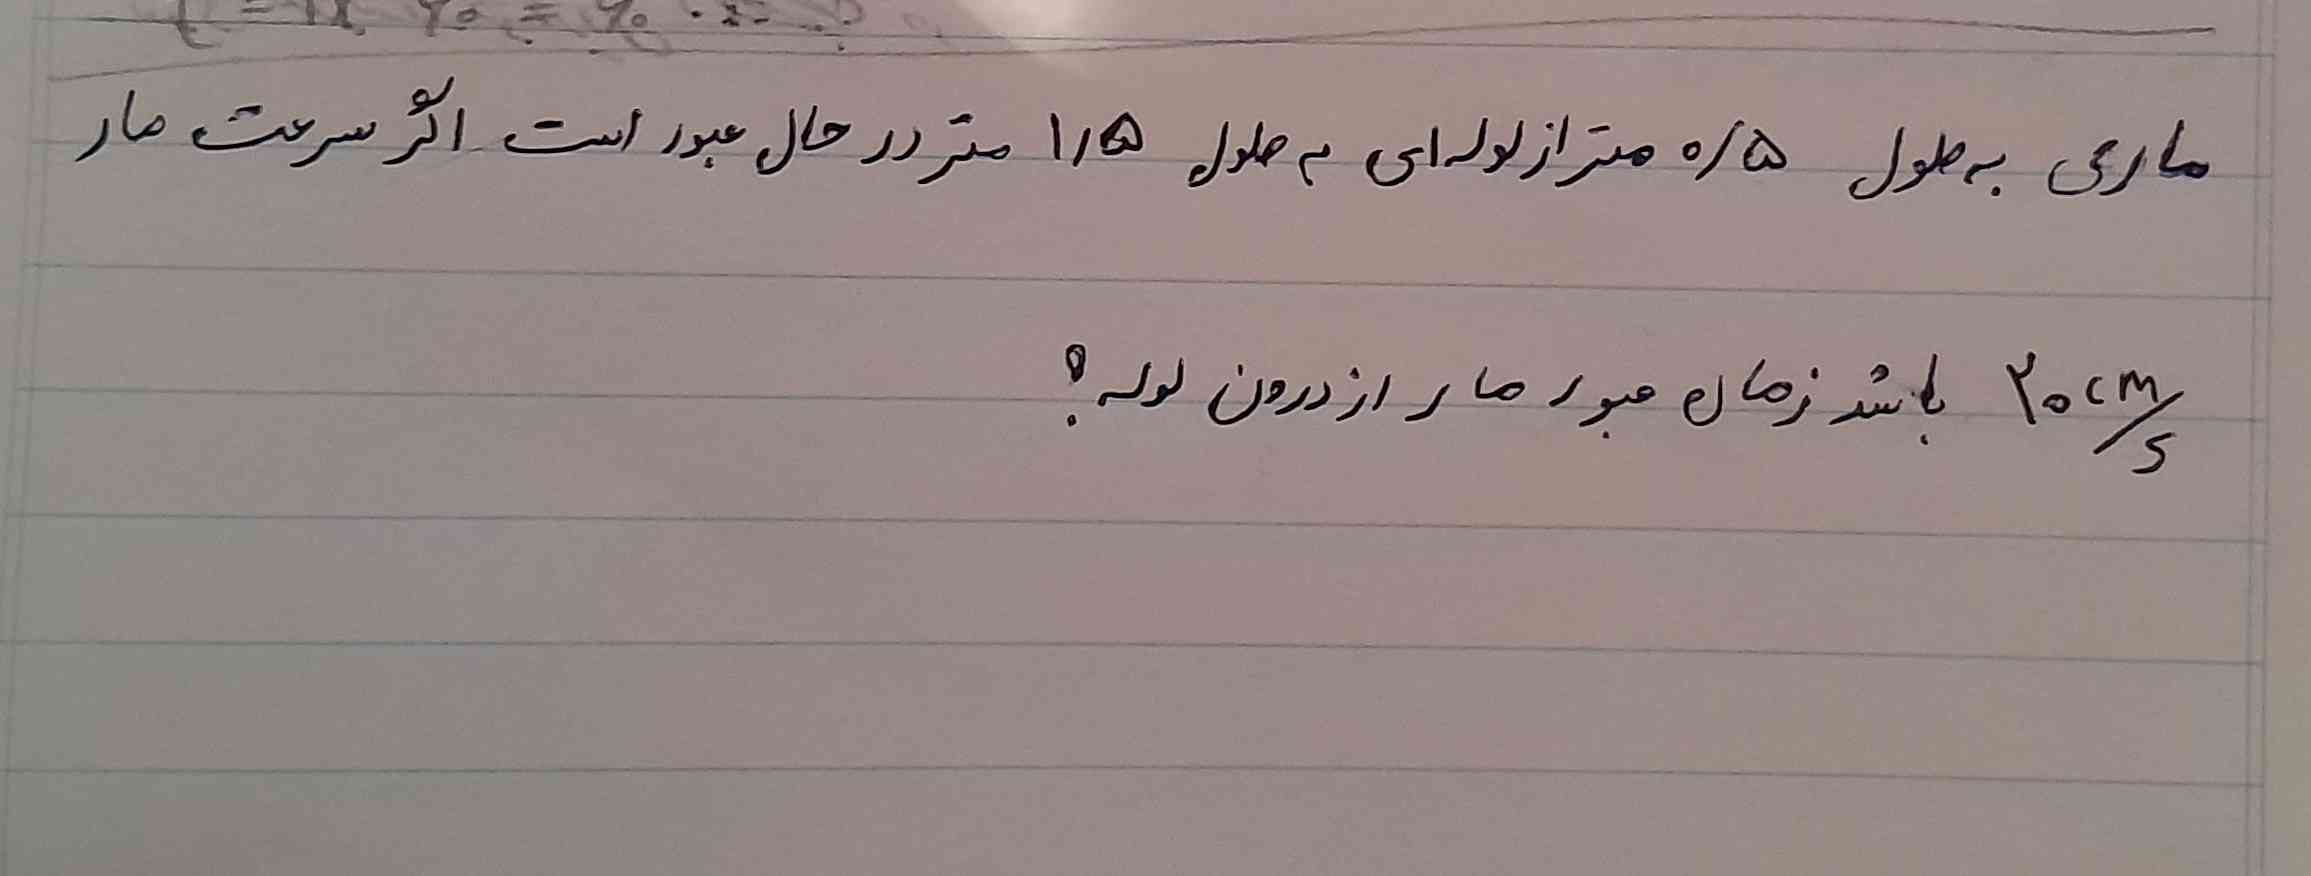 ماری به طول ۰/۵ متر از لوله ای به طول ۱/۵ متر در حال عبور است اگر سرعت مار
۲۰ cm/s باشد زمان عبور مار از درون لوله؟